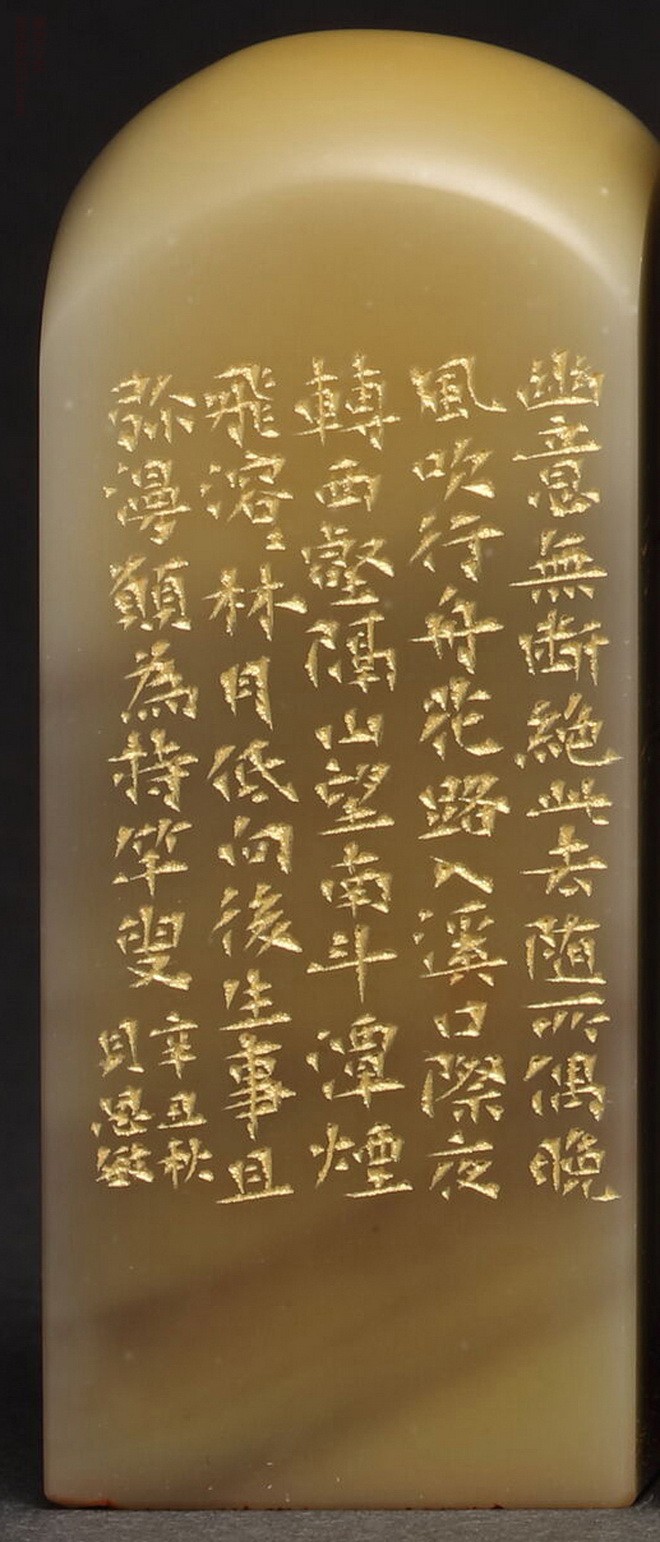 幽意無斷絕此去随所偶晚
風吹行舟花路入溪口際夜
轉西壑隔山望南斗潭煙
飛溶〻林月低向後生事且
弥漫願為持竿叟
辛丑秋